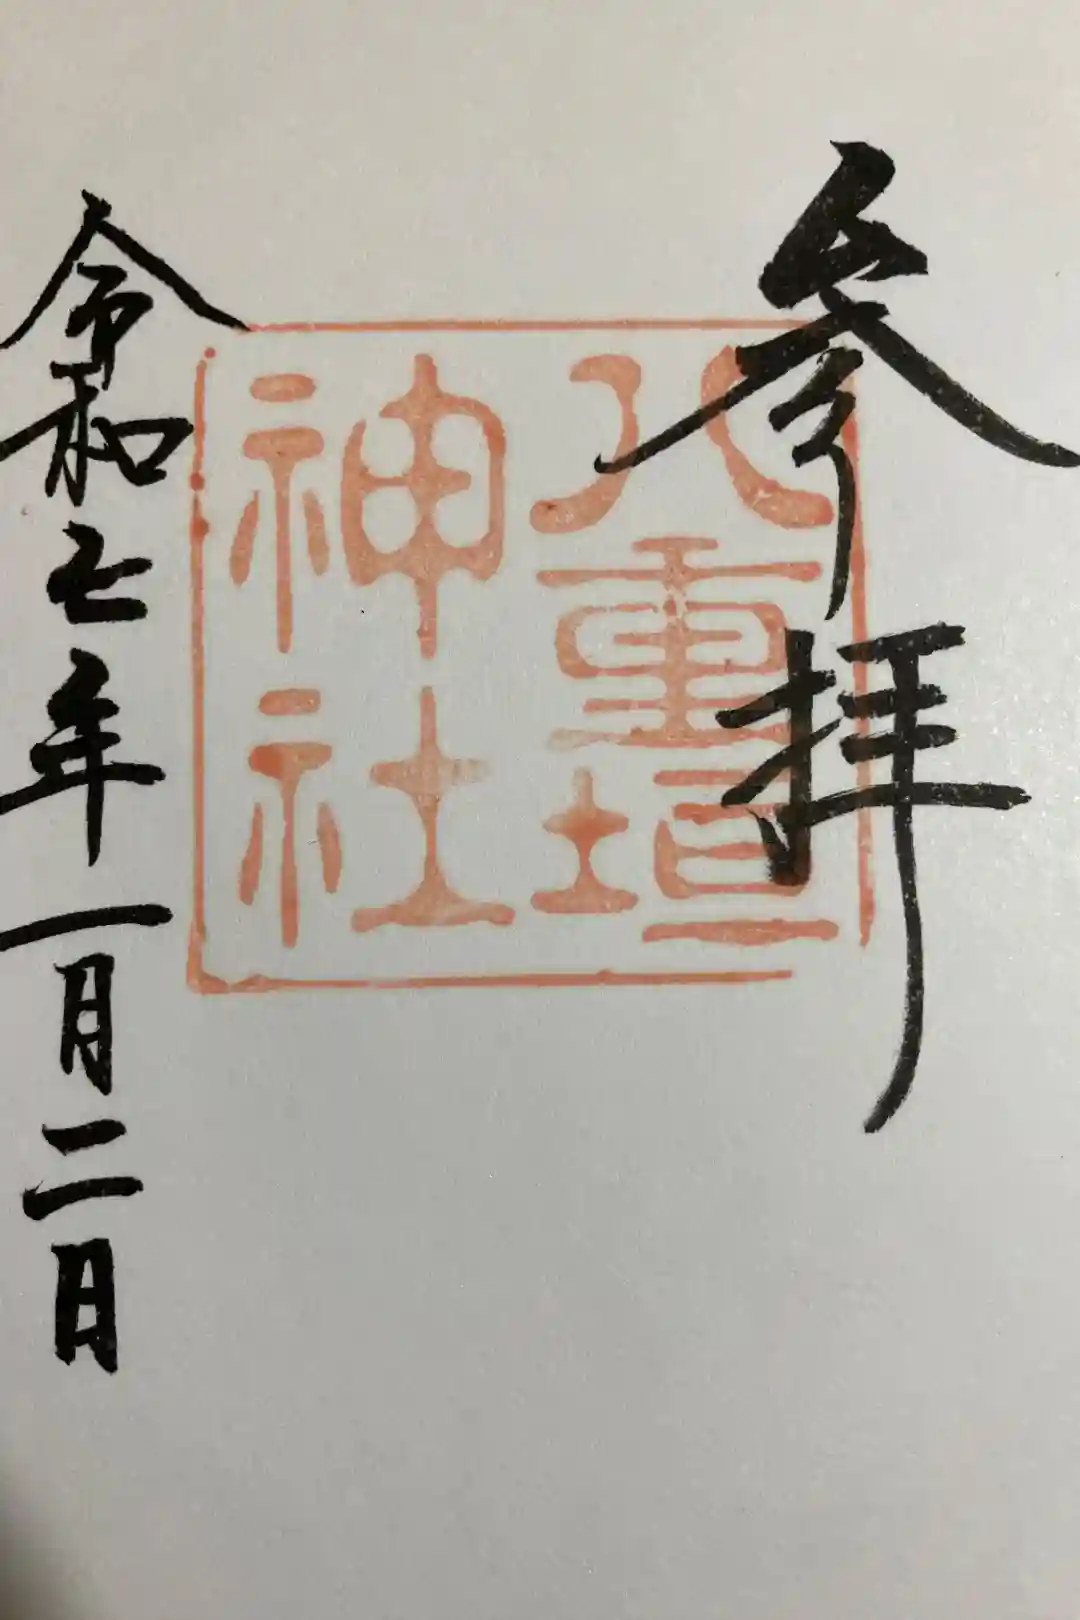 参拝
八重垣
神社
令和七年一月二日